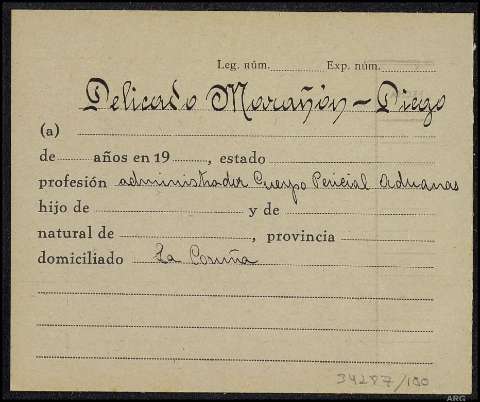 Leg. núm. Exp. núm.
Delicado Marañón - Diego
(a)
de años en 19 , estado
profesión administrador Cuerpo Pericial Aduanas
hijo de y de
natural de , provincia
domiciliado La Coruña
34287/150
ARG